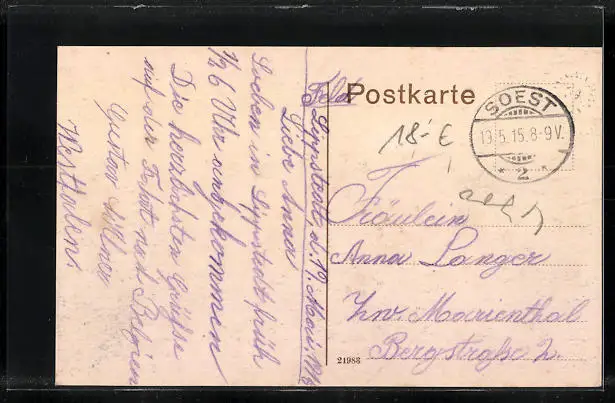 Lippstadt, d. 19. Mai. 1915
Liebe Anna
Soeben in Lippstadt früh
1/2 6 Uhr angekommen
Die herzlichsten Grüße
auf der Fahrt nach Belgien
Gustav
Westfalen.
Feld Postkarte
18.- €
SOEST
19.5.15.8-9V.
* 2 *
Fräulein
Anna Langer
Zw. Marienthal
Bergstraße 2.
21983